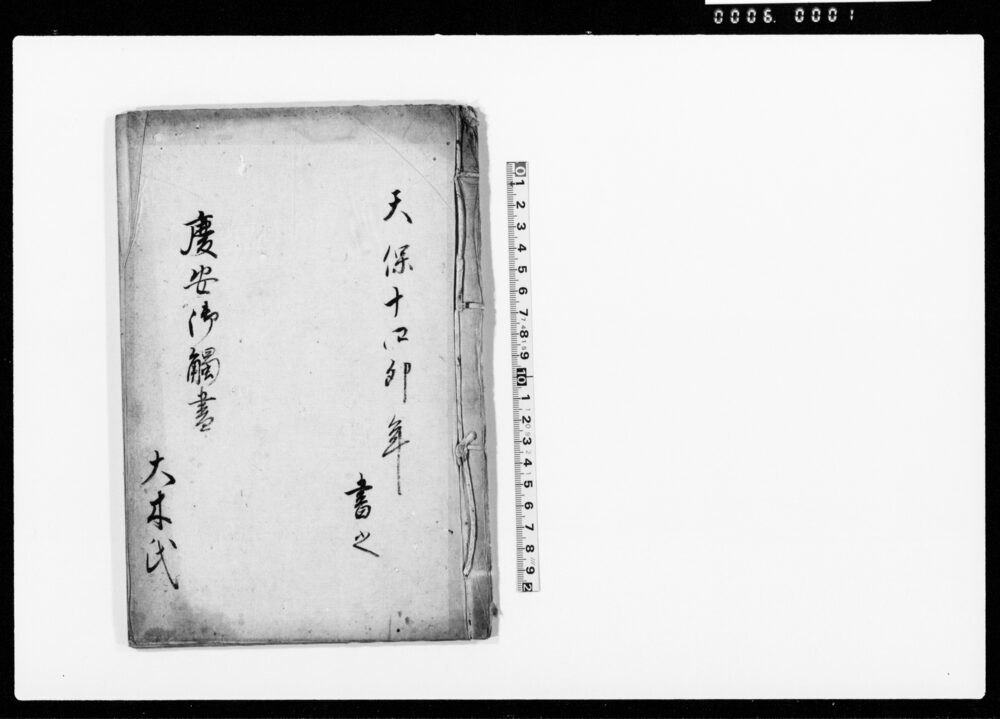 0006. 0001
天保十四卯年
書之
慶安御觸書
大木氏
0 1 2 3 4 5 6 7 8 9 10 1 2 3 4 5 6 7 8 9 2